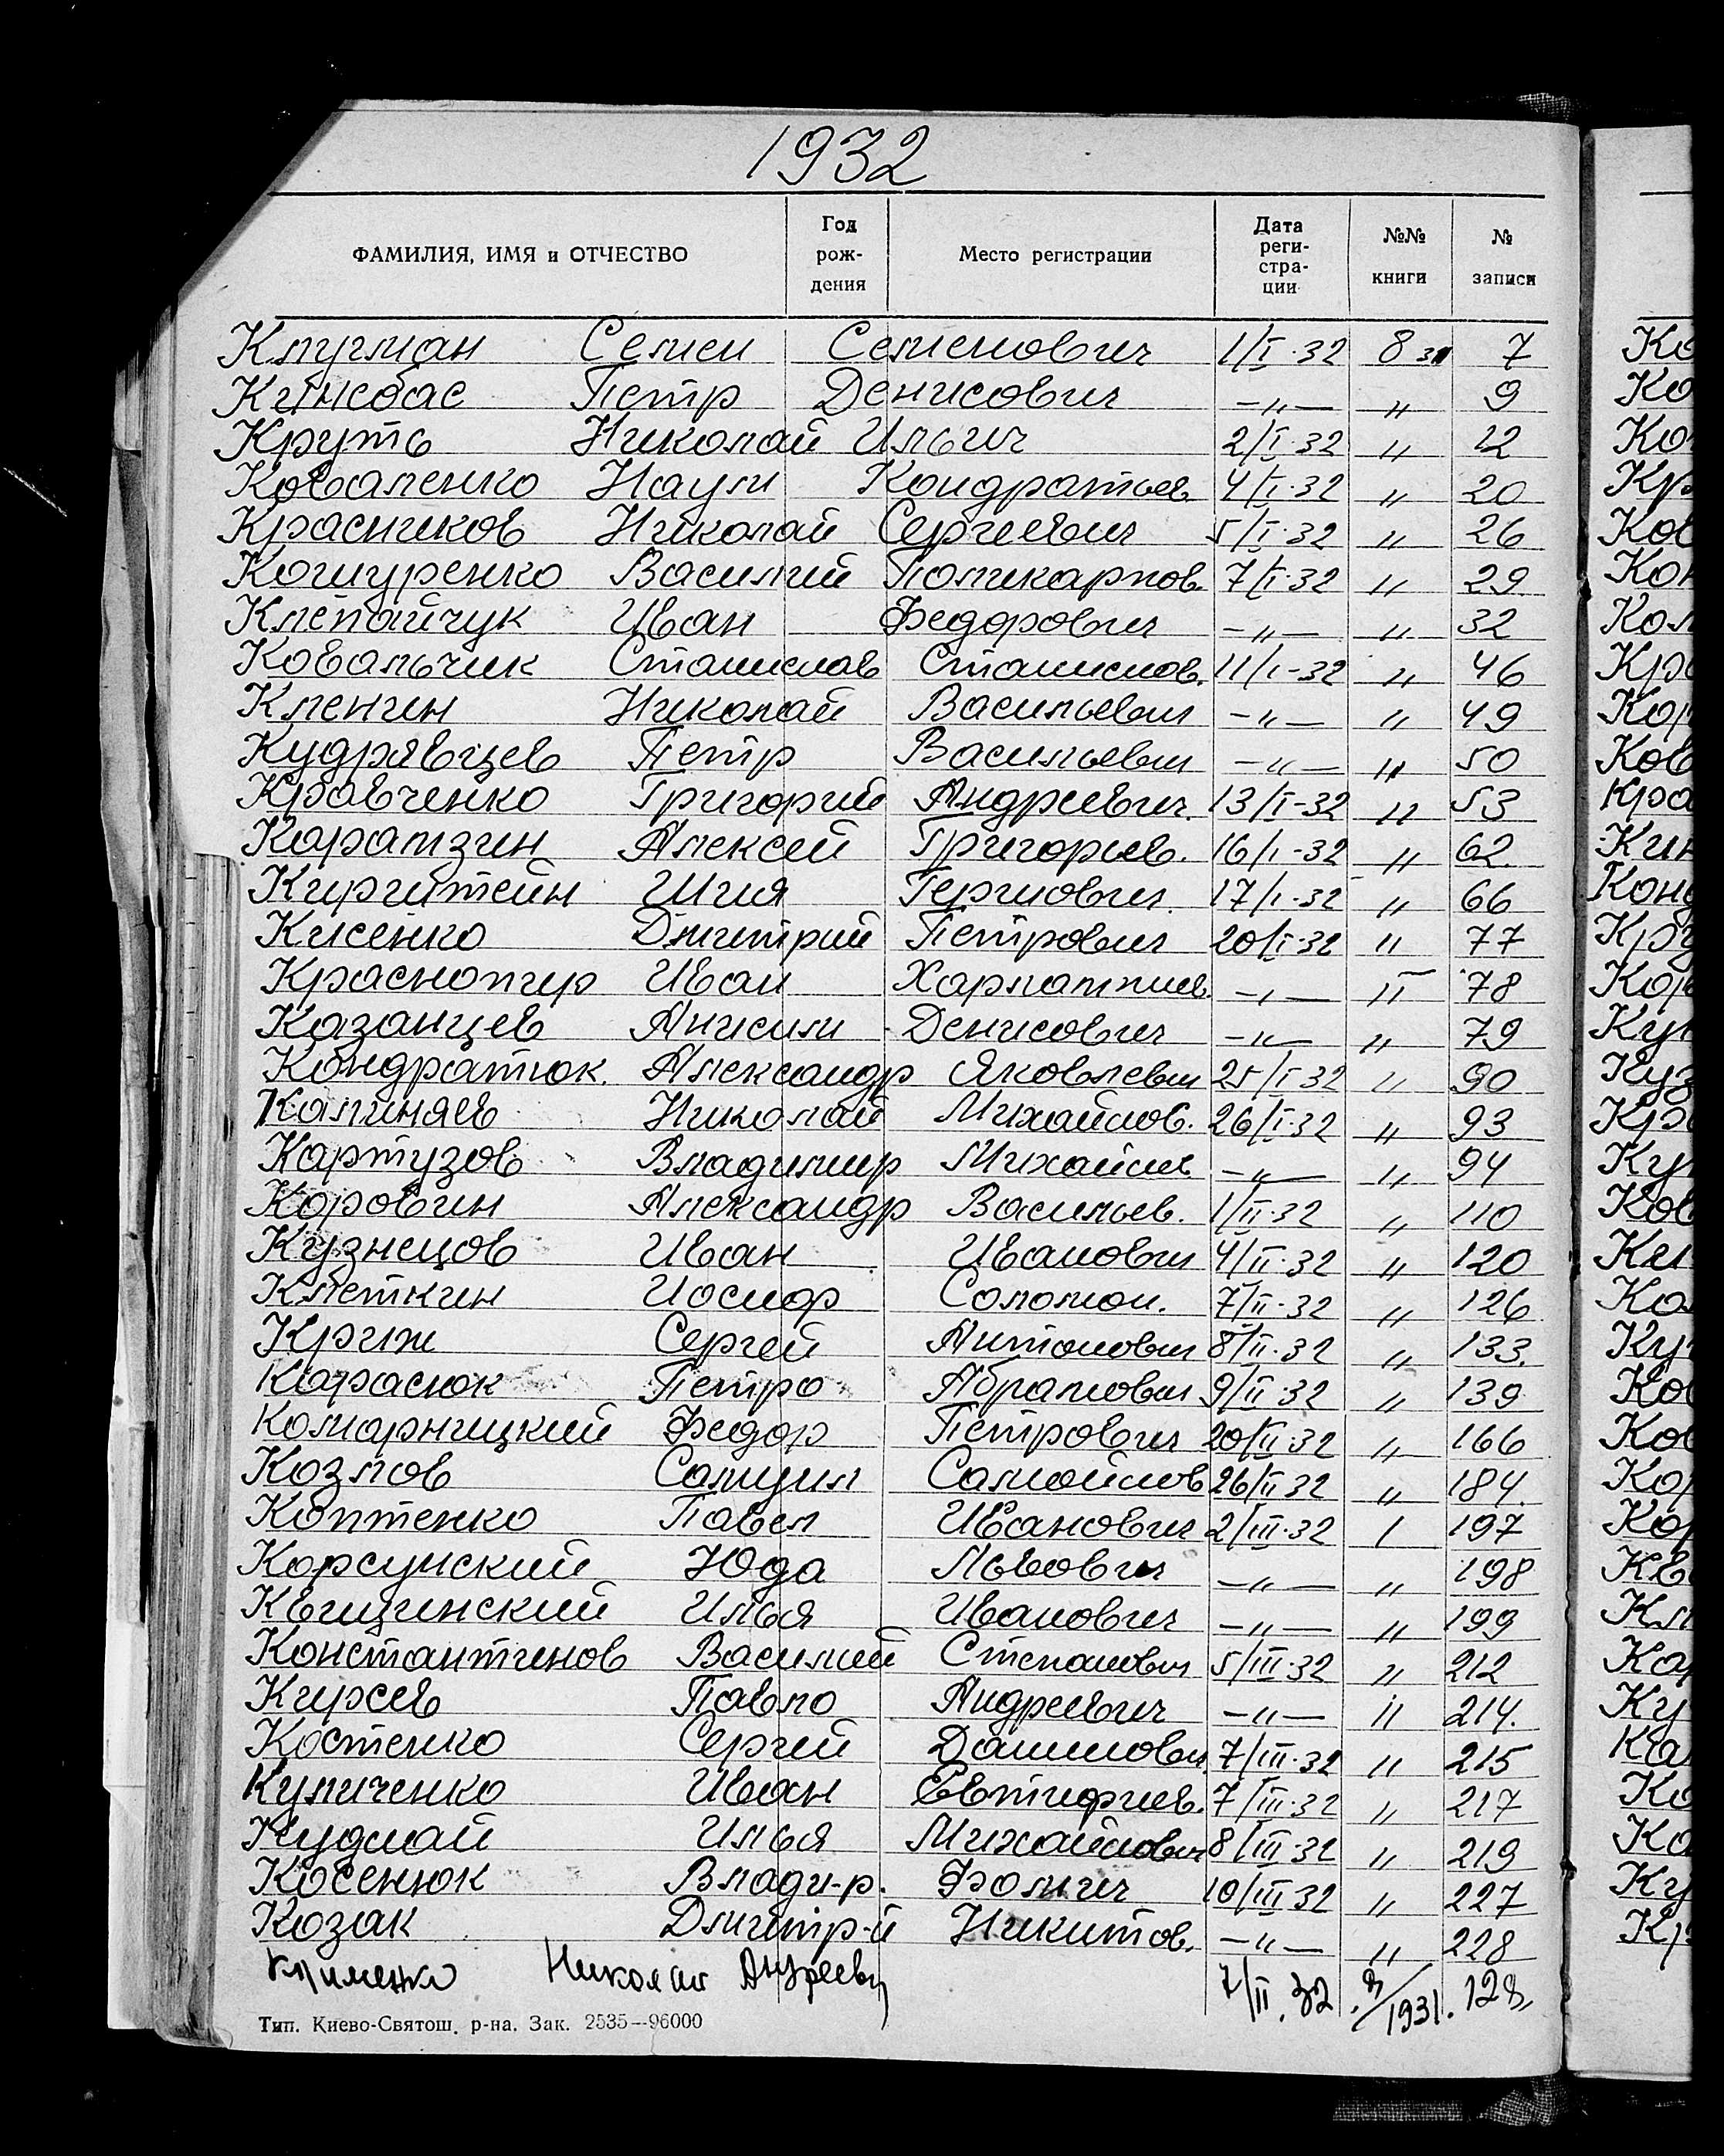 1932
ФАМИЛИЯ, ИМЯ и ОТЧЕСТВО Год рождения Место регистрации Дата регистрации №№ книги № записи
Клугман Семен Семенович 1/I·32 8 31 7
Петр Денисович —„— „ 9
Круть Николай Ильич 2/I·32 „ 12
Коваленко Наум Кондратьев. 4/I·32 „ 20
Красников Николай Сергеевич 5/I·32 „ 26
Кошуренко Василий Поликарпов. 7/I·32 „ 29
Клепайчук Иван Федорович —„— „ 32
Ковальчик Станислав Станислов. 11/I-32 „ 46
Кленин Николай Васильевич —„— „ 49
Кудрявцев Петр Васильевич —„— „ 50
Кравченко Григорий Андреевич. 13/I-32 „ 53
Карамзин Алексей Григорьев. 16/I-32 „ 62
Киргштейн Шия Гершович. 17/I·32 „ 66
Кисенко Дмитрий Петрович 20/I·32 „ 77
Краснопир Иван Харлампиев. —„— „ 78
Казанцев Анисим Денисович —„— „ 79
Кондратюк. Александр Яковлевич 25/I 32 „ 90
Калиняев Николай Михайлов. 26/I·32 „ 93
Картузов Владимир Михайлов. —„— „ 94
Коровин Александр Васильев. 1/II·32 „ 110
Кузнецов Иван Иванович 4/II·32 „ 120
Клеткин Иосиф Соломон. 7/II·32 „ 126
Криж Сергей Антонович 8/II·32 „ 133.
Карасюк Петро Абрамович 9/II·32 „ 139
Комарницкий Федор Петрович 20/II·32 „ 166
Козлов Самуил Самойлов 26/II·32 „ 184.
Коптенко Павел Иванович 2/III·32 1 197
Корсунский Юда Львович —„— „ 198
Квицинский Илья Иванович —„— „ 199
Константинов Василий Степанович 5/III·32 „ 212
Кирсев Павло Андреевич —„— „ 214.
Костенко Сергей Данилович 7/III·32 „ 215
Куличенко Иван Евтифиев. 7/III·32 „ 217
Кудлай Илья Михайлович 8/III·32 „ 219
Косенюк Влади-р. Фомич 10/III 32 „ 227
Козак Дмитр-й Никитов. —„— „ 228
Клименко Николай Андреевич 7/II. 32 /1931. 128,
Тип. Киево-Святош. р-на. Зак. 2535—96000
Ко
Ко
Кр
Ков
Кон
Кол
Кра
Кор
Ков
Кра
Кин
Конд